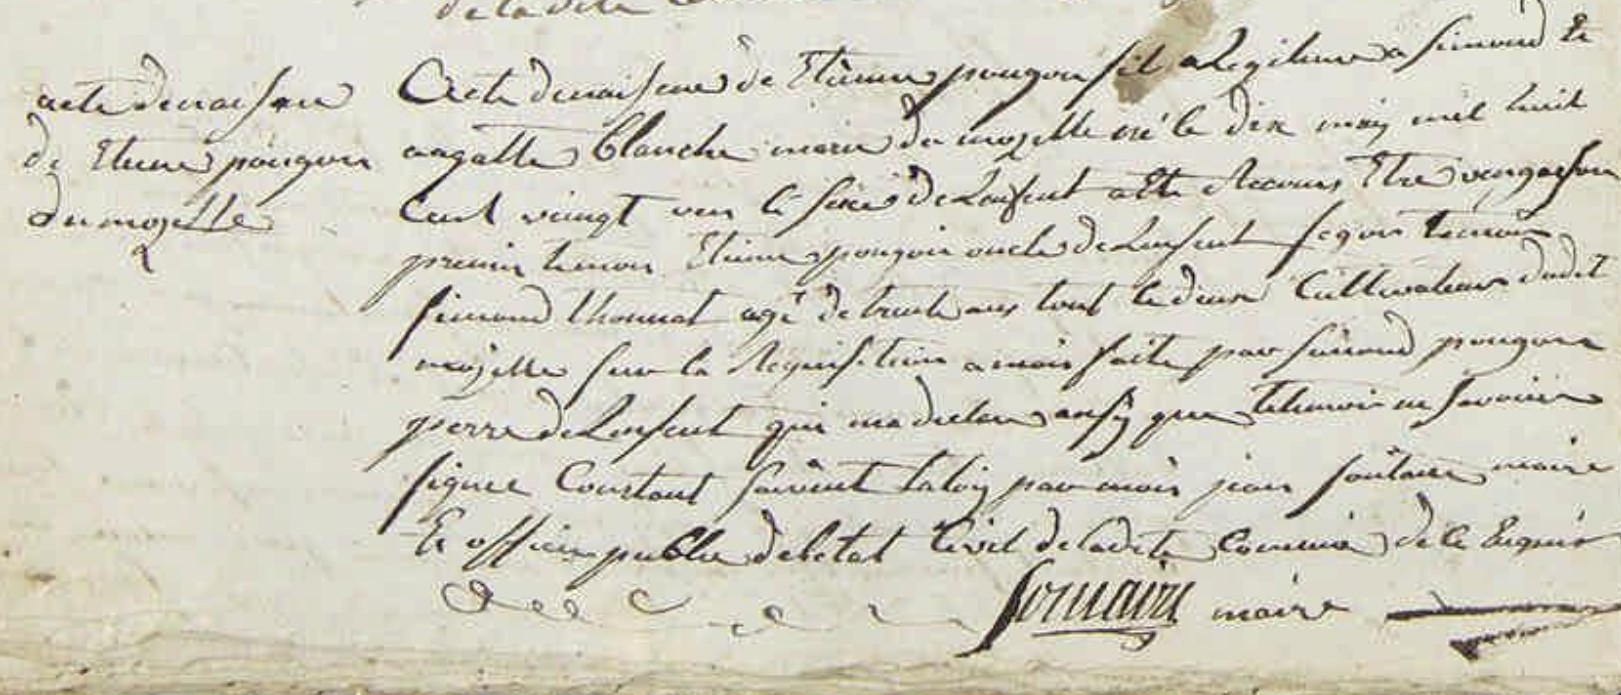 de la dite
acte de naisance
de Etiene pougon
du mozelle
Acte de naisance de Etienne pougon fil legitime a simond et
agatte blanche marie du mozelle né le dix may mil huit
cent vingt un le sexe de Lenfant a ete Reconus Etre un garson
premier temoin Etienne pougon oncle de Lenfant segon temoin
simond thonnat agé de trente ans tout le deux Cultivateur dudit
mozelle sur la Requisition a mois faite par simond pougon
perre de Lenfant qui ma declare ansy que temoin ne savoir
signer Constant suivent la loy par mois jean maire
Et officier public de letat Civil de la dite Commune de
maire